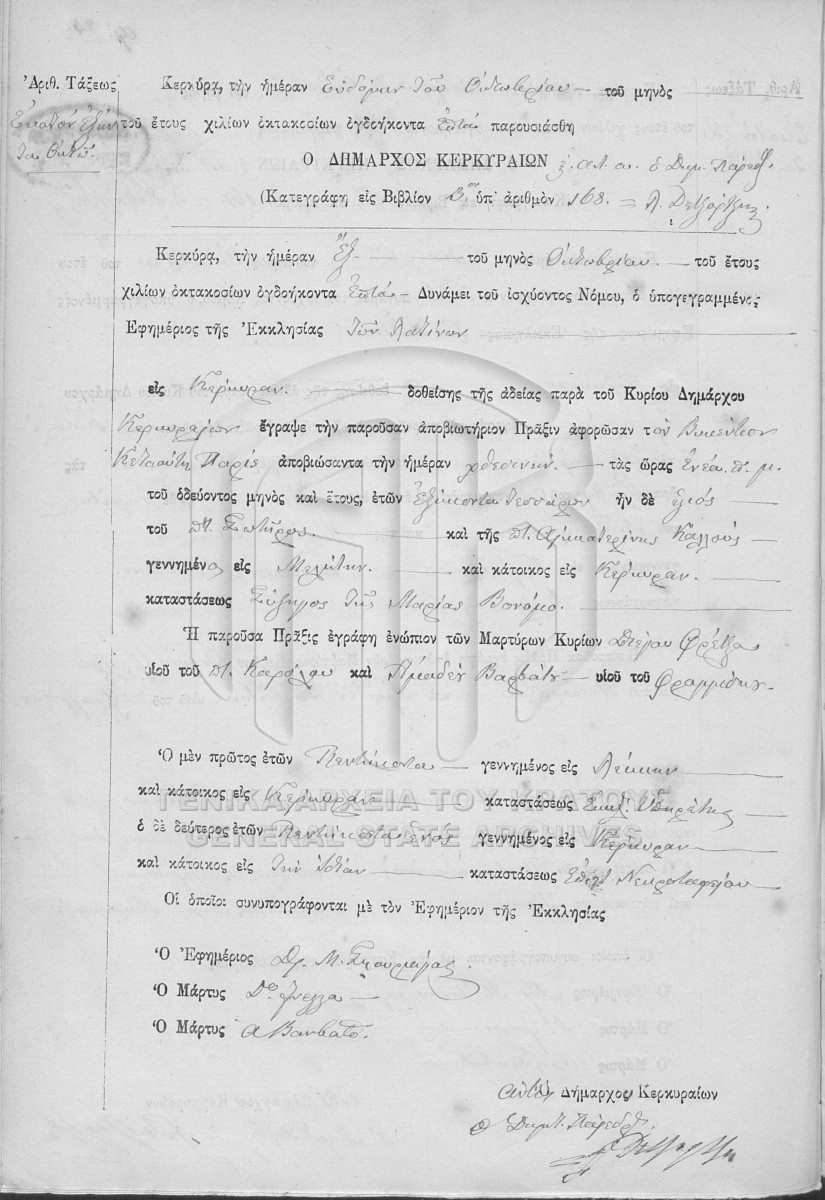 Ἀριθ. Τάξεως
Ἑκατὸν ἑξήντα ὀκτώ.
Κερκύρα, τὴν ἡμέραν Εὐδόμην τοῦ Ὀκτωβρίου τοῦ μηνὸς
τοῦ ἔτους χιλίων ὀκτακοσίων ὀγδοήκοντα ἑπτά παρουσιάσθη
Ο ΔΗΜΑΡΧΟΣ ΚΕΡΚΥΡΑΙΩΝ
(Κατεγράφη εἰς Βιβλίον Β ὑπ' ἀριθμὸν 168.
Κερκύρα, τὴν ἡμέραν Ἕξ τοῦ μηνὸς Ὀκτωβρίου τοῦ ἔτους
χιλίων ὀκτακοσίων ὀγδοήκοντα ἑπτά Δυνάμει τοῦ ἰσχύοντος Νόμου, ὁ ὑπογεγραμμένος
Ἐφημέριος τῆς Ἐκκλησίας τῶν Λατίνων
εἰς Κέρκυραν. δοθείσης τῆς ἀδείας παρὰ τοῦ Κυρίου Δημάρχου
Κερκυραίων ἔγραψε τὴν παροῦσαν ἀποβιωτήριον Πρᾶξιν ἀφορῶσαν τὸν Βικέντιον
Παρὶς ἀποβιώσαντα τὴν ἡμέραν χθεσινήν. τὰς ὥρας ἐννέα π. μ.
τοῦ ὁδεύοντος μηνὸς καὶ ἔτους, ἐτῶν ἑξήκοντα τεσσάρων ἦν δὲ υἱός
τοῦ πτ. Σωτῆρος. καὶ τῆς πτ. Αἰκατερίνης Καλλοὺς
γεννημένος εἰς Μελίτην. καὶ κάτοικος εἰς Κέρκυραν.
καταστάσεως Σύζυγος τῆς Μαρίας Βονάμο.
Ἡ παροῦσα Πρᾶξις ἐγράφη ἐνώπιον τῶν Μαρτύρων Κυρίων
υἱοῦ τοῦ πτ. Καρόλου καὶ Ἀμαδέη Βαρβάτη υἱοῦ τοῦ Φραγγίσκου.
Ὁ μὲν πρῶτος ἐτῶν Πεντήκοντα γεννημένος εἰς Λέκκην
καὶ κάτοικος εἰς Κέρκυραν καταστάσεως Ἐκκλ. Ὑπηρέτης
ὁ δὲ δεύτερος ἐτῶν Πεντήκοντα ἑνός γεννημένος εἰς Κέρκυραν
καὶ κάτοικος εἰς τὴν ἰδίαν καταστάσεως Ἐπιστ. Νεκροταφείου
Οἱ ὁποῖοι συνυπογράφονται μὲ τὸν Ἐφημέριον τῆς Ἐκκλησίας
Ὁ Ἐφημέριος Δρ. Μ.
Ὁ Μάρτυς
Ὁ Μάρτυς
Δήμαρχος Κερκυραίων
ὁ Δημ. Πάρεδρος
ΓΕΝΙΚΑ ΑΡΧΕΙΑ ΤΟΥ ΚΡΑΤΟΥΣ
GENERAL STATE ARCHIVES